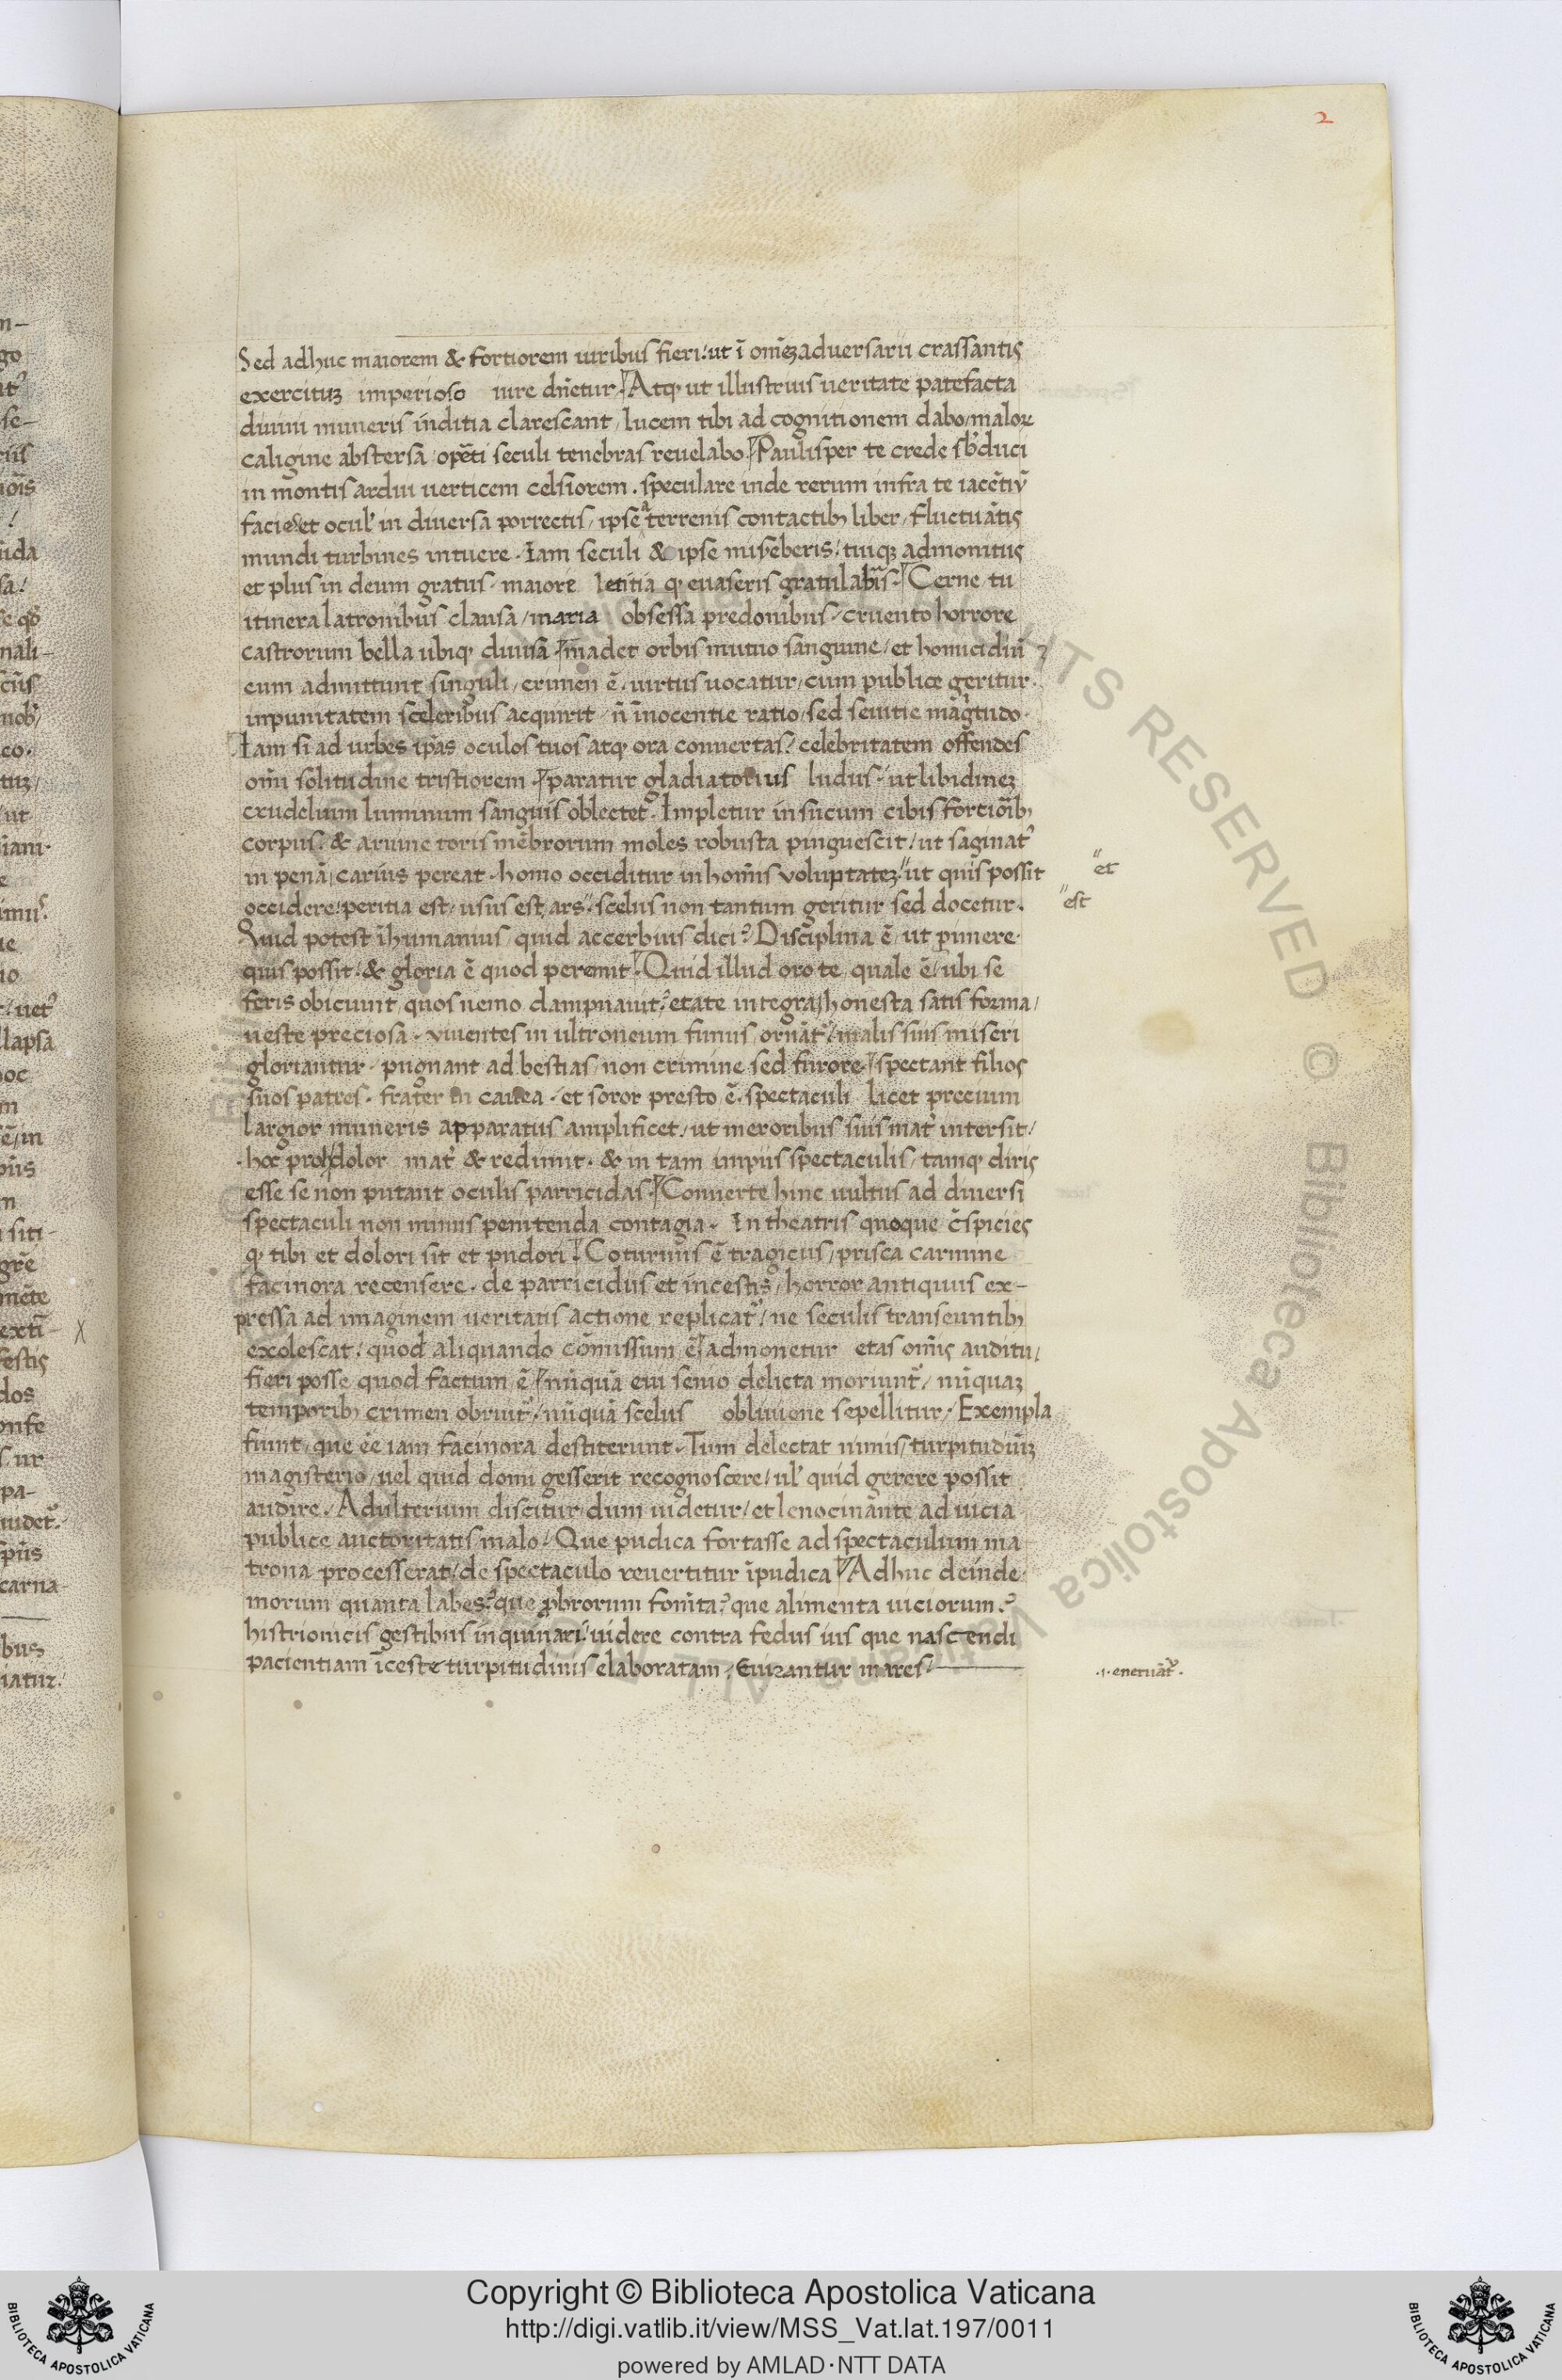 2
Sed adhuc maiorem & fortiorem uiribus fieri: ut ī omēꝫ aduersarii crassantis
exercituꝫ imperioso iure dn̄etur. Atq; ut illustrius ueritate patefacta
diuini muneris inditia clarescant, lucem tibi ad cognitionem dabo, maloꝝ
caligine abstersa, op̄eti seculi tenebras reuelabo. Paulisper te crede sb̓duci
in montis ardui uerticem celsiorem. speculare inde rerum infra te iacētiū
facies et ocul' in diuersa porrectis, ipse a terrenis contactib; liber, fluctuātis
mundi turbines intuere. Iam seculi & ipse miseberis, tuiq; admonitus
et plus in deum gratus, maiore letitia q; euaseris gratulab̄is. Cerne tu
itinera latronibus clausa, maria obsessa predonibus, cruento horrore
castrorum bella ubiq; diuisa. madet orbis mutuo sanguine, et homicidiū
cum admittunt singuli, crimen ē. uirtus uocatur, cum publice geritur.
inpunitatem sceleribus acquirit n̄ īnocentie ratio, sed seuitie māg̓tudo.
Iam si ad urbes ip̄as oculos tuos atq; ora conuertas, celebritatem offendes
omī solitudine tristiorem. paratur gladiatorius ludus, ut libidineꝫ
crudelium luminum sanguis oblectet. Impletur in sucum cibis fortiorib;
corpus, & aruine toris mēbrorum moles robusta pinguescit, ut saginat̓
in penā, carius pereat. homo occiditur in hom̄is voluptateꝫ, ut quis possit
occidere, peritia est, usus est, ars. scelus non tantum geritur sed docetur.
Quid potest īhumanius, quid accerbius dici? Disciplina ē, ut pimere
quis possit, & gloria ē quod peremit. Quid illud oro te, quale ē, ubi se
feris obiciunt, quos nemo dampnauit? etate integra, honesta satis forma,
ueste preciosa. viuentes in ultroneum funus ornāt̓, malis suis miseri
gloriantur. pugnant ad bestias, non crimine sed furore. spectant filios
suos patres. frater in cauea. et soror presto ē. spectaculi licet precium
largior muneris apparatus amplificet, ut meroribus suis mat̓ intersit,
hoc proh dolor mat̓ & redimit. & in tam impiis spectaculis, tamq; diris
esse se non putant oculis parricidas. Conuerte hinc uultus ad diuersi
spectaculi non minus penitenda contagia. In theatris quoque c̄spicies
q; tibi et dolori sit et pudori. Coturnus ē tragicus, prisca carmine
facinora recensere. de parricidiis et incestis, horror antiquus ex-
pressa ad imaginem ueritatis actione replicat̓, ne seculis transeuntib;
exolescat, quod aliquando cōmissum ē. admonetur etas om̄is auditu,
fieri posse quod factum ē. nūquā eui senio delicta moriunt̓, nūquaꝫ
temporib; crimen obruit̓, nūquā scelus obliuione sepellitur. Exempla
fiunt, que ēe iam facinora destiterunt. Tum delectat nimis, turpitudinū
magisterio, uel quid domi gesserit recognoscere, ul' quid gerere possit
audire. Adulterium discitur dum uidetur, et lenocinante ad uicia
publice auctoritatis malo. Que pudica fortasse ad spectaculum ma
trona processerat, de spectaculo reuertitur īpudica. Adhuc deinde
morum quanta labes? que p̱brorum fomīta? que alimenta uiciorum?
histrionicis gestibus inquinari, uidere contra fedus iusque nascendi
pacientiam īceste turpitudinis elaboratam. Euirantur mares
et
est
.i. eneruāt̓.
Copyright © Biblioteca Apostolica Vaticana
http://digi.vatlib.it/view/MSS_Vat.lat.197/0011
powered by AMLAD·NTT DATA
BIBLIOTECA APOSTOLICA VATICANA
BIBLIOTECA APOSTOLICA VATICANA